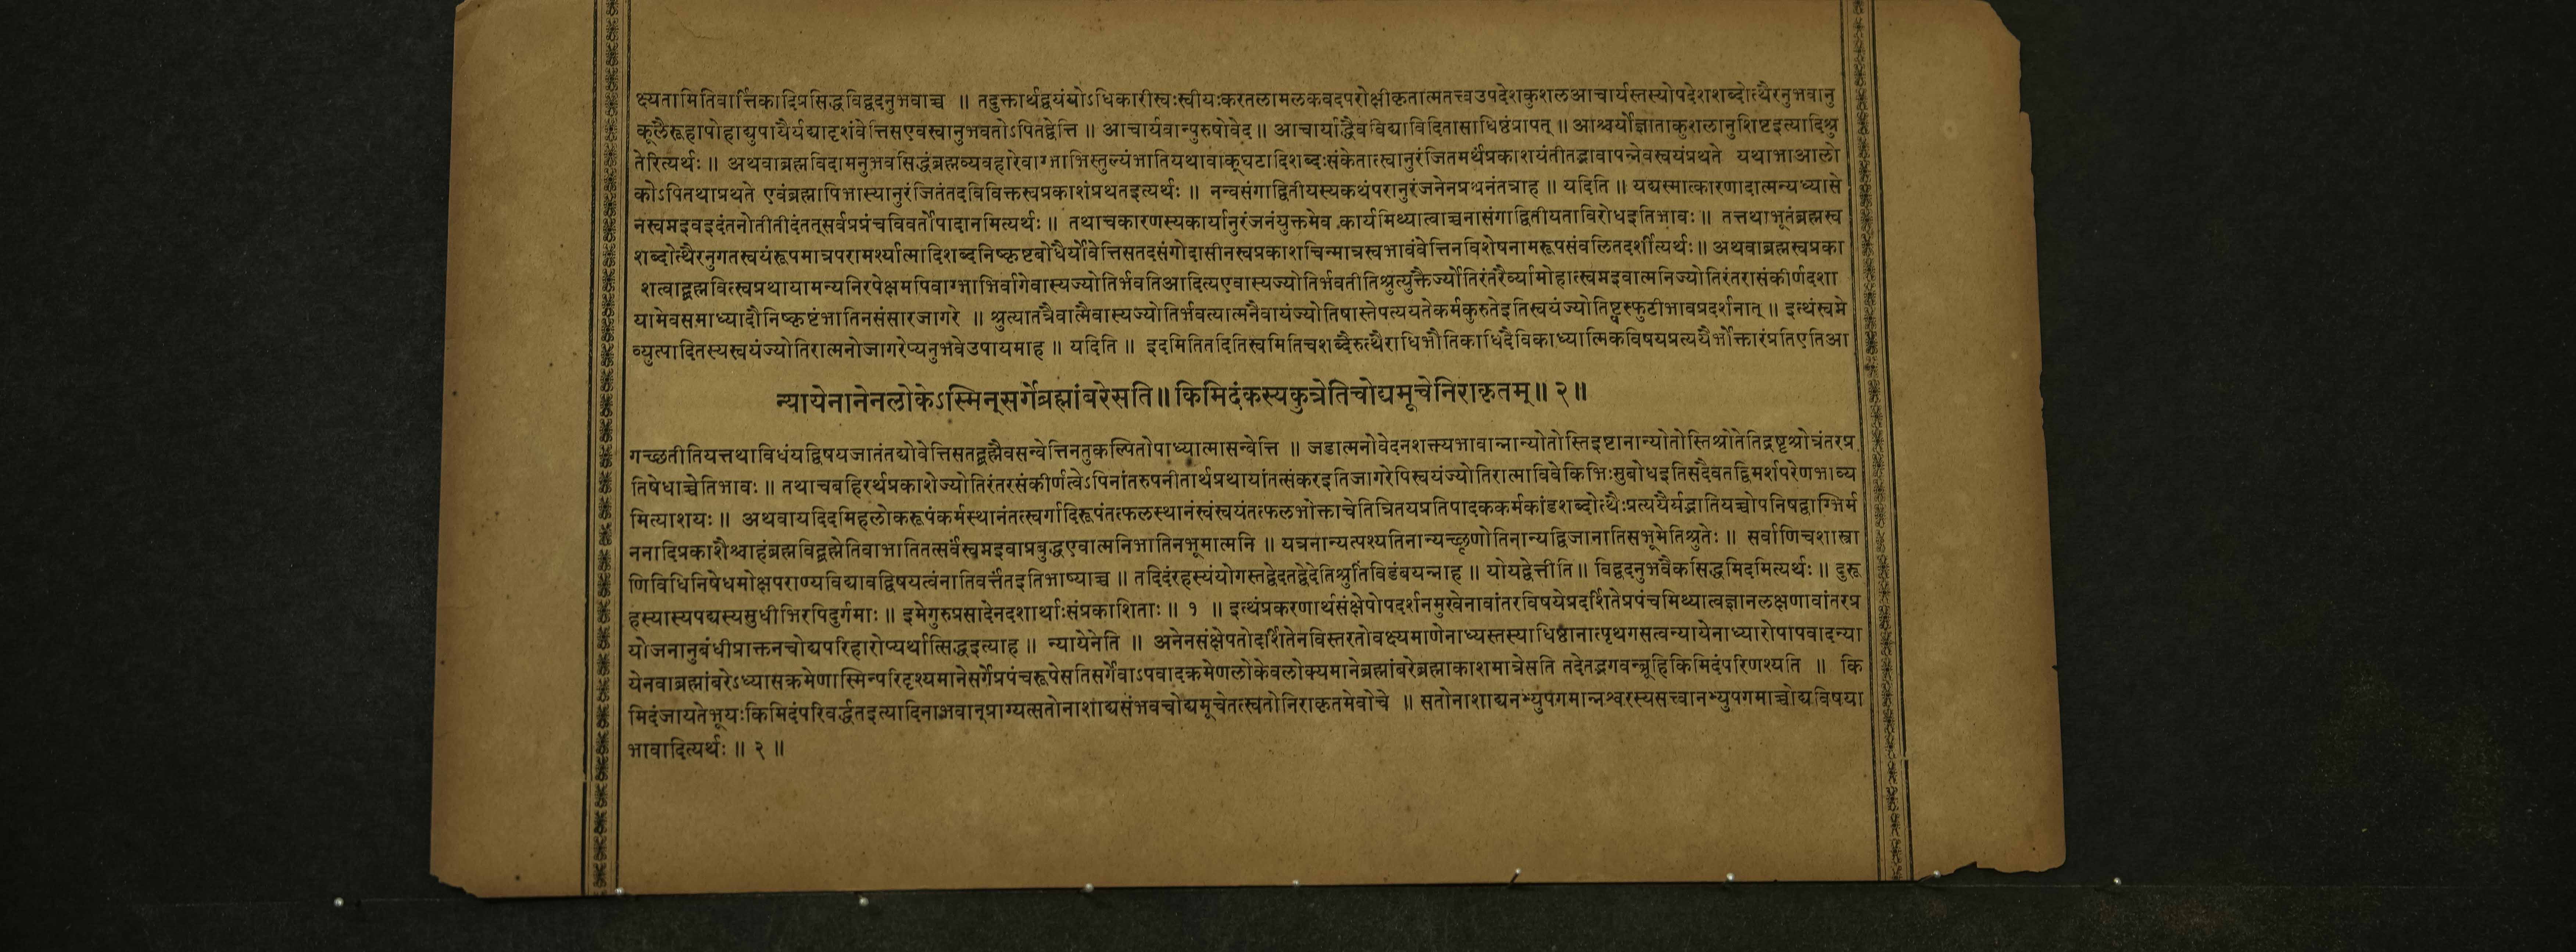 क्ष्यतामितिवार्त्तिकादिप्रसिद्धविद्वदनुभवाच्च ॥ तदुक्तार्थद्वयंयोऽधिकारीस्वःस्वीयःकरतलामलकवदपरोक्षीकृतात्मतत्त्वउपदेशकुशलआचार्यस्तस्योपदेशशब्दोत्थैरनुभवानु
कूलैरूहापोहाद्युपायैर्यद्यादृशंवेत्तिसएवस्वानुभवतोऽपितद्वेत्ति ॥ आचार्यवान्पुरुषोवेद ॥ आचार्याद्धैवविद्याविदितासाधिष्ठंप्रापत् ॥ आश्चर्योज्ञाताकुशलानुशिष्टइत्यादिश्रु
तेरित्यर्थः ॥ अथवाब्रह्मविदामनुभवसिद्धंब्रह्मव्यवहारेवाग्भाभिस्तुल्यंभातियथावाक्घटादिशब्दःसंकेतात्स्वानुरंजितमर्थंप्रकाशयंतीतद्भावापन्नेवस्वयंप्रथते यथाभाआलो
कोऽपितथाप्रथते एवंब्रह्मापिभास्यानुरंजितंतदविविक्तस्वप्रकाशंप्रथतइत्यर्थः ॥ नन्वसंगाद्वितीयस्यकथंपरानुरंजनेनप्रथनंतत्राह ॥ यदिति ॥ यद्यस्मात्कारणादात्मन्यध्यासे
नस्वप्नइवइदंतनोतीतीदंतत्सर्वप्रपंचविवर्तोपादानमित्यर्थः ॥ तथाचकारणस्यकार्यानुरंजनंयुक्तमेव कार्यमिथ्यात्वाच्चनासंगाद्वितीयताविरोधइतिभावः ॥ तत्तथाभूतंब्रह्मस्व
शब्दोत्थैरनुगतस्वयंरूपमात्रपरामर्श्यात्मादिशब्दनिष्कृष्टबोधैर्योवेत्तिसतदसंगोदासीनस्वप्रकाशचिन्मात्रस्वभावंवेत्तिनविशेषनामरूपसंवलितदर्शीत्यर्थः ॥ अथवाब्रह्मस्वप्रका
शत्वाद्ब्रह्मवित्स्वप्रथायामन्यनिरपेक्षमपिवाग्भाभिर्वागेवास्यज्योतिर्भवतिआदित्यएवास्यज्योतिर्भवतीतिश्रुत्युक्तैर्ज्योतिरंतरैर्व्यामोहात्स्वप्नइवात्मनिज्योतिरंतरासंकीर्णदशा
यामेवसमाध्यादौनिष्कृष्टंभातिनसंसारजागरे ॥ श्रुत्यातत्रैवात्मैवास्यज्योतिर्भवत्यात्मनैवायंज्योतिषास्तेपल्ययतेकर्मकुरुतेइतिस्वयंज्योतिष्ट्वस्फुटीभावप्रदर्शनात् ॥ इत्थंस्वप्ने
व्युत्पादितस्यस्वयंज्योतिरात्मनोजागरेप्यनुभवेउपायमाह ॥ यदिति ॥ इदमितितदितिस्वमितिचशब्दैरुत्थैराधिभौतिकाधिदैविकाध्यात्मिकविषयप्रत्ययैर्भोक्तारंप्रतिएतिआ
न्यायेनानेनलोकेऽस्मिन्सर्गेब्रह्मांबरेसति ॥ किमिदंकस्यकुत्रेतिचोद्यमूचेनिराकृतम् ॥ २ ॥
गच्छतीतियत्तथाविधंयद्विषयजातंतद्योवेत्तिसतद्ब्रह्मैवसन्वेत्तिनतुकल्पितोपाध्यात्मासन्वेत्ति ॥ जडात्मनोवेदनशक्त्यभावान्नान्योतोस्तिद्रष्टानान्योतोस्तिश्रोतेतिद्रष्टृश्रोत्रंतरप्र
तिषेधाच्चेतिभावः ॥ तथाचबहिरर्थप्रकाशेज्योतिरंतरसंकीर्णत्वेऽपिनांतरुपनीतार्थप्रथायांतत्संकरइतिजागरेपिस्वयंज्योतिरात्माविवेकिभिःसुबोधइतिसदैवतद्विमर्शपरेणभाव्य
मित्याशयः ॥ अथवायदिदमिहलोकरूपंकर्मस्थानंतत्स्वर्गादिरूपंतत्फलस्थानंस्वंस्वयंतत्फलभोक्ताचेतित्रितयप्रतिपादककर्मकांडशब्दोत्थैःप्रत्ययैर्यद्भातियच्चोपनिषद्वाग्भिर्म
ननादिप्रकाशैश्चाहंब्रह्मविद्ब्रह्मेतिवाभातितत्सर्वंस्वप्नइवाप्रबुद्धएवात्मनिभातिनभूमात्मनि ॥ यत्रनान्यत्पश्यतिनान्यच्छृणोतिनान्यद्विजानातिसभूमेतिश्रुतेः ॥ सर्वाणिचशास्त्रा
णिविधिनिषेधमोक्षपराण्यविद्यावद्विषयत्वंनातिवर्त्तंतइतिभाष्याच्च ॥ तदिदंरहस्यंयोगस्तद्वेदतद्वेदेतिश्रुतिंविडंबयन्नाह ॥ योयद्वेत्तीति ॥ विद्वदनुभवैकसिद्धमिदमित्यर्थः ॥ दुरू
हस्यास्यपद्यस्यसुधीभिरपिदुर्गमाः ॥ इमेगुरुप्रसादेनदशार्थाःसंप्रकाशिताः ॥ १ ॥ इत्थंप्रकरणार्थसंक्षेपोपदर्शनमुखेनावांतरविषयेप्रदर्शितेप्रपंचमिथ्यात्वज्ञानलक्षणावांतरप्र
योजनानुबंधीप्राक्तनचोद्यपरिहारोप्यर्थात्सिद्धइत्याह ॥ न्यायेनेति ॥ अनेनसंक्षेपतोदर्शितेनविस्तरतोवक्ष्यमाणेनाध्यस्तस्याधिष्ठानात्पृथगसत्वन्यायेनाध्यारोपापवादन्या
येनवाब्रह्मांबरेऽध्यासक्रमेणास्मिन्परिदृश्यमानेसर्गेप्रपंचरूपेसतिसर्गेवाऽपवादक्रमेणलोकेवलोक्यमानेब्रह्मांबरेब्रह्माकाशमात्रेसति तदेतद्भगवन्ब्रूहिकिमिदंपरिणश्यति ॥ कि
मिदंजायतेभूयःकिमिदंपरिवर्द्धतइत्यादिनाभवान्प्राग्यत्सतोनाशाद्यसंभवचोद्यमूचेतत्स्वतोनिराकृतमेवोचे ॥ सतोनाशाद्यनभ्युपगमान्नश्वरस्यसत्त्वानभ्युपगमाच्चोद्यविषया
भावादित्यर्थः ॥ २ ॥